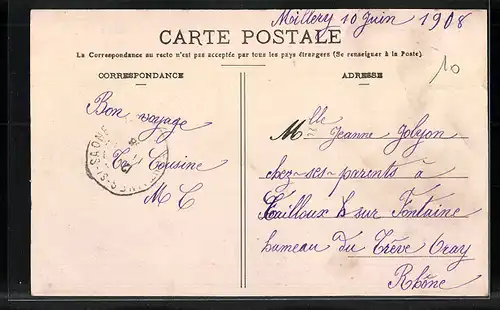 Millery 10 Juin 1908
CARTE POSTALE
La Correspondance au recto n'est pas acceptée par tous les pays étrangers (Se renseigner à la Poste).
10
CORRESPONDANCE
ADRESSE
Bon voyage
Ta Cousine
M C
Mlle Jeanne Gobjon
chez ses parents à
sur Fontaine
hameau du Trève Oray
Rhône